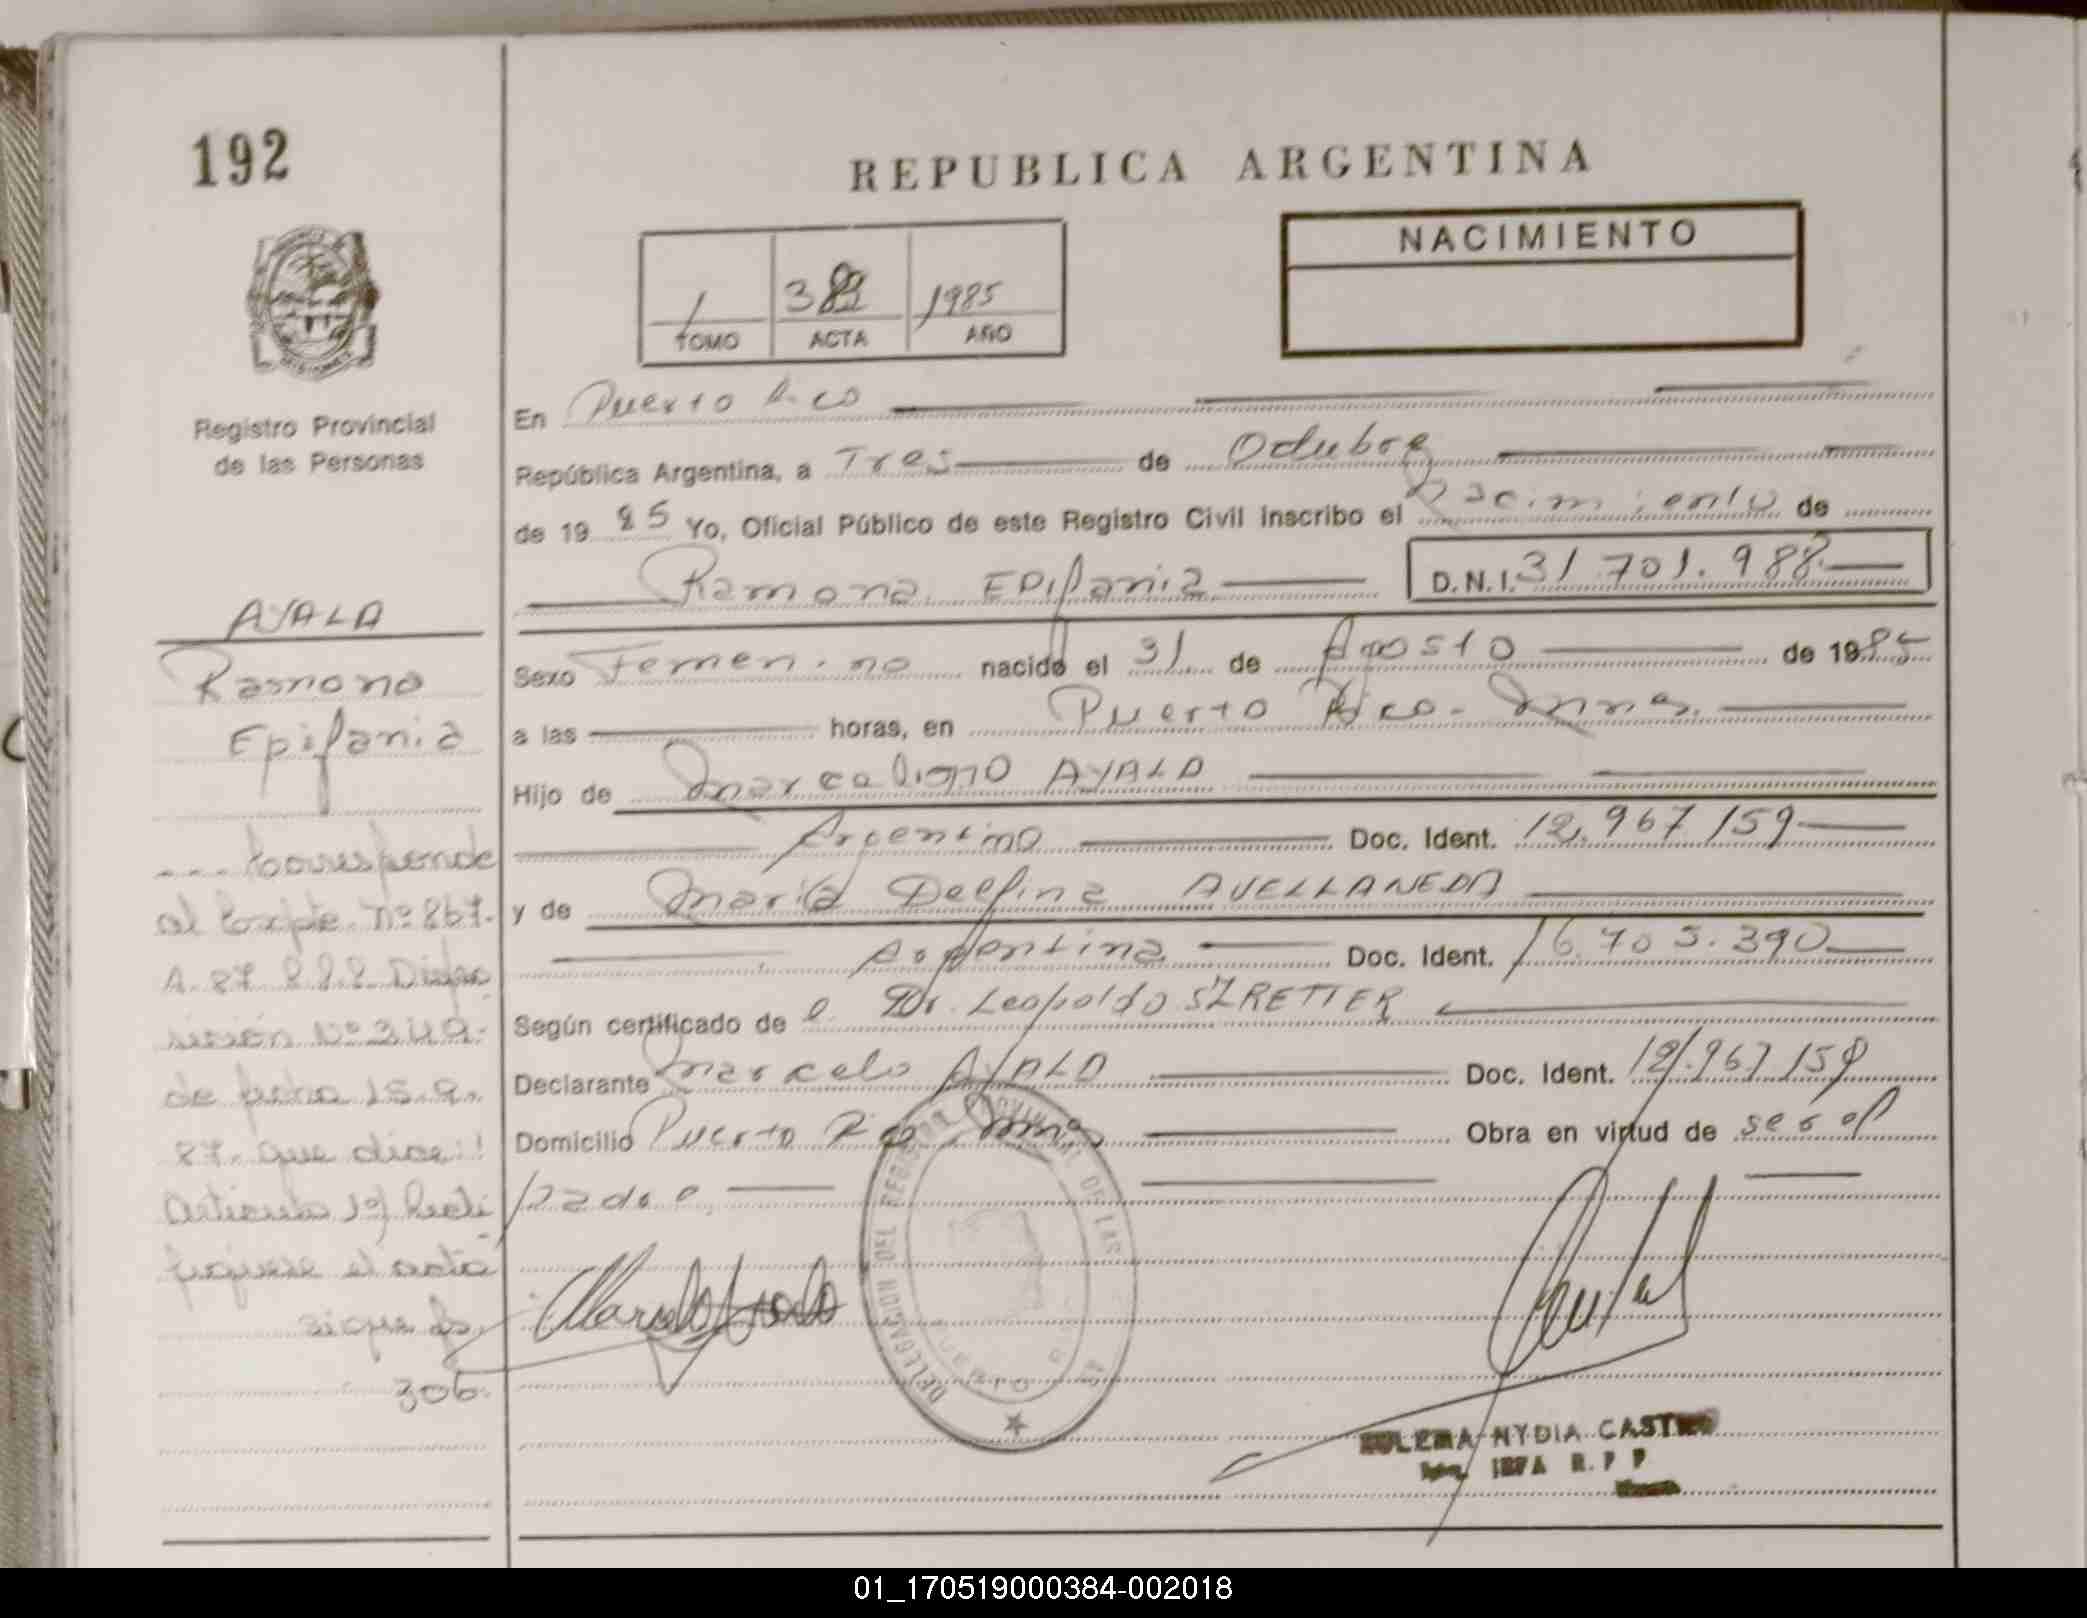 192
Registro Provincial
de las Personas
AYALA
Ramona
Epifania
--- Corresponde
al Expte. Nº 867.
A. 87
sición Nº 349.
de fecha 15.9.
87. que dice:
Artículo 1º) Recti
fíquese el acta
sigue fs.
306.
REPUBLICA ARGENTINA
NACIMIENTO
1 1985
TOMO ACTA AÑO
En Puerto Rico
República Argentina, a Tres de Octubre
de 19 85 Yo, Oficial Público de este Registro Civil Inscribo el Nacimiento de
Ramona Epifania D.N.I. 31.701.988
Sexo Femenino nacido el 31 de Agosto de 1985
a las horas, en Puerto Rico - Mnes.
Hijo de Marcelino AYALA
Argentino Doc. Ident. 12.967.159
y de María Delfina AVELLANEDA
Argentina Doc. Ident. 16.705.390
Según certificado de Dr. Leopoldo SZRETTER
Declarante Marcelo AYALA Doc. Ident. 12.967.159
Domicilio Puerto Rico Mnes. Obra en virtud de ser el
padre
DELEGACION DEL REGISTRO PROVINCIAL DE LAS
ZULEMA NYDIA CASTRO
R.P.P
01_170519000384-002018